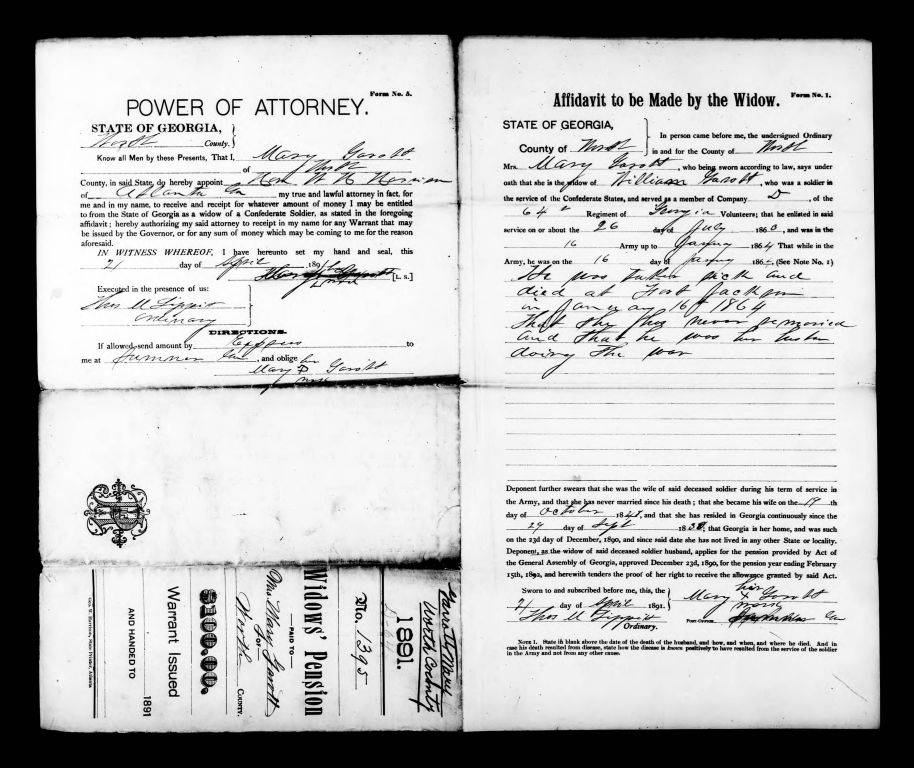 Form No. 5.
POWER OF ATTORNEY.
STATE OF GEORGIA,
Worth County.
Know all Men by these Presents, That I, Mary Garott
of Worth
County, in said State, do hereby appoint Hon W H Harrison
of Atlanta Ga my true and lawful attorney in fact, for
me and in my name, to receive and receipt for whatever amount of money I may be entitled
to from the State of Georgia as a widow of a Confederate Soldier, as stated in the foregoing
affidavit; hereby authorizing my said attorney to receipt in my name for any Warrant that may
be issued by the Governor, or for any sum of money which may be coming to me for the reason
aforesaid.
IN WITNESS WHEREOF, I have hereunto set my hand and seal, this
21 day of April 1891
[L. S.]
Executed in the presence of us:
Thos U Tippit
Ordinary
DIRECTIONS.
If allowed, send amount by Express to
me at Sumner Ga, and oblige her
Mary X Garott
mark
Form No. 1.
Affidavit to be Made by the Widow.
STATE OF GEORGIA,
County of Worth
In person came before me, the undersigned Ordinary
in and for the County of Worth
Mrs. Mary Garott, who being sworn according to law, says under
oath that she is the widow of William Garott, who was a soldier in
the service of the Confederate States, and served as a member of Company D, of the
64th Regiment of Georgia Volunteers; that he enlisted in said
service on or about the 26 day of July 1863, and was in the
16 Army up to January 1864 That while in the
Army, he was on the 16 day of January 1864, (See Note No. 1)
He was taken sick and
died at Fort Jackson
in January 16th 1864
That she has never remarried
and that he was her husban
during the war
Deponent further swears that she was the wife of said deceased soldier during his term of service in
the Army, and that she has never married since his death; that she became his wife on the 19 th
day of October 184, and that she has resided in Georgia continuously since the
29 day of Sept 183, that Georgia is her home, and was such
on the 23d day of December, 1890, and since said date she has not lived in any other State or locality.
Deponent, as the widow of said deceased soldier husband, applies for the pension provided by Act of
the General Assembly of Georgia, approved December 23d, 1890, for the pension year ending February
15th, 1892, and herewith tenders the proof of her right to receive the allowance granted by said Act.
Sworn to and subscribed before me, this, the
21 day of April 1891.
Thos U Tippit
Ordinary.
her
Mary X Garott
mark
POST-OFFICE, Ga
NOTE 1. State in blank above the date of the death of the husband, and how, and when, and where he died. And in
case his death resulted from disease, state how the disease is known positively to have resulted from the service of the soldier
in the Army and not from any other cause.
Garott, Mary
Worth County
1891.
No. 1395
Widows' Pension
—PAID TO—
Mrs Mary Garott
For
Worth COUNTY.
$100.00.
Warrant Issued
1891
AND HANDED TO
Geo. W. Harrison, State Printer, Atlanta